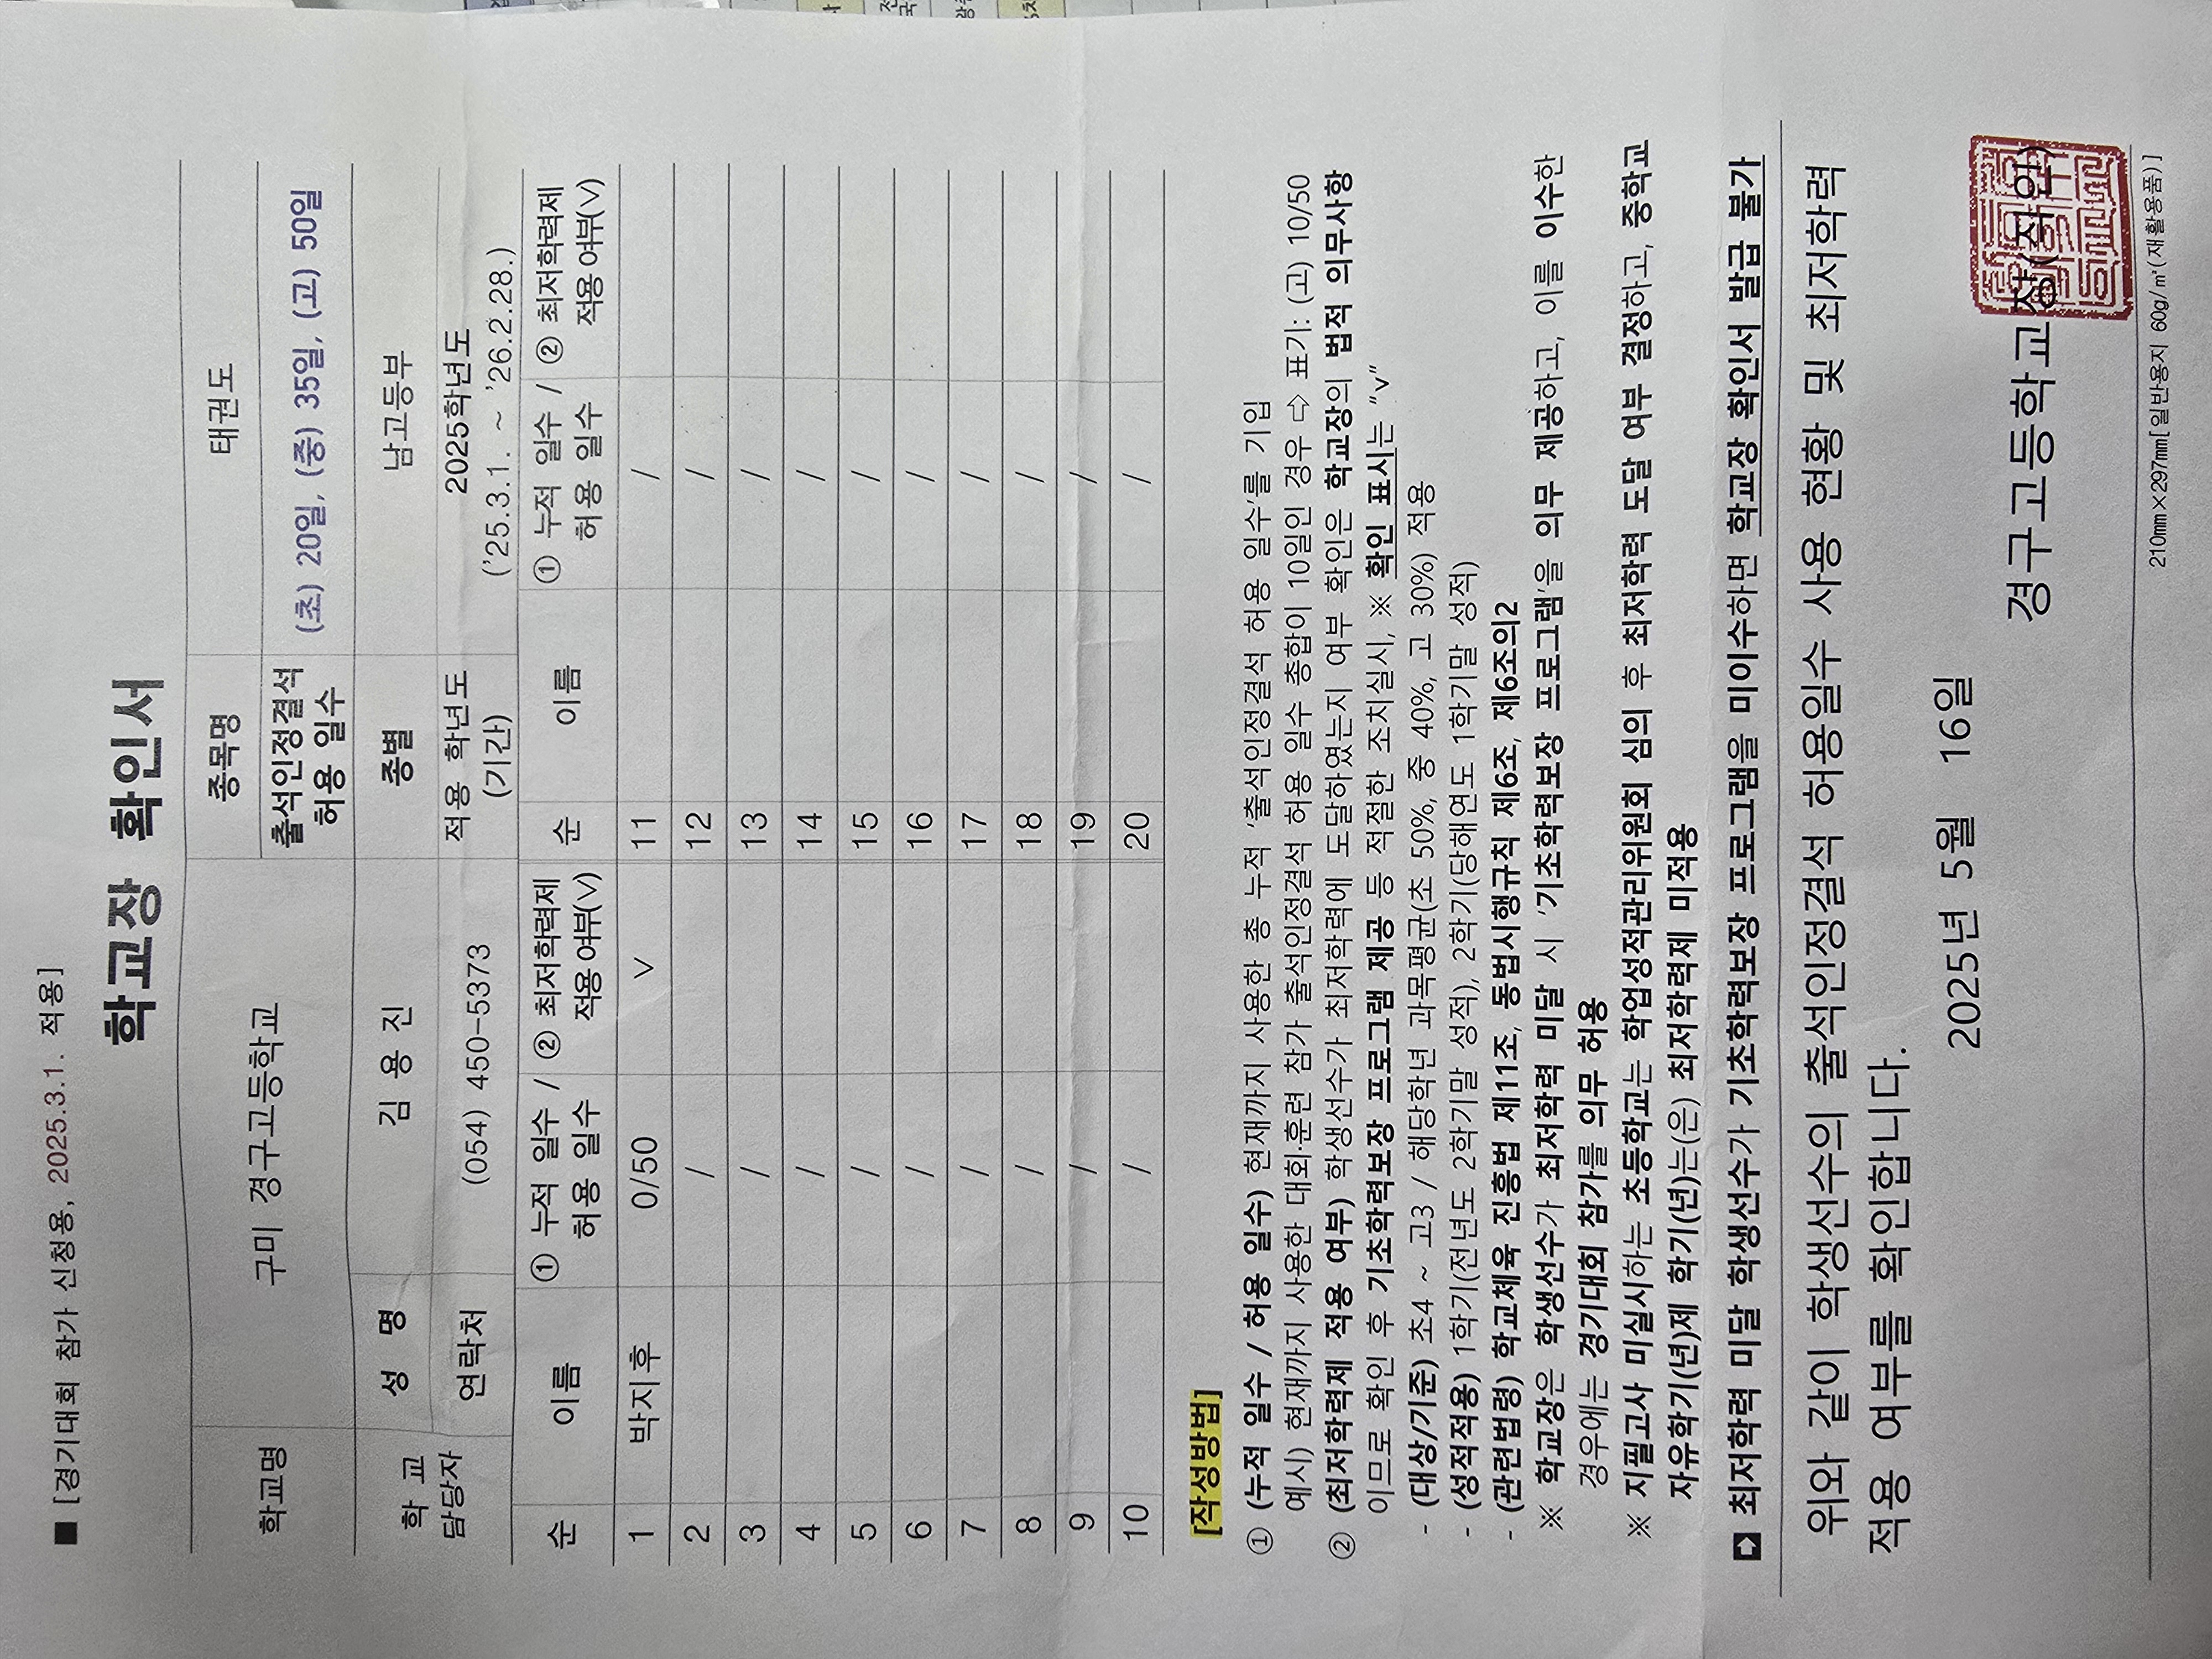 ■ [경기대회 참가 신청용, 2025.3.1. 적용]
학교장 확인서
학교명 구미 경구고등학교 종목명 태권도
출석인정결석 허용 일수 (초) 20일, (중) 35일, (고) 50일
학 교 담당자 성 명 김 용 진 종별 남고등부
연락처 (054) 450-5373 적용 학년도 (기간) 2025학년도 ('25.3.1. ~ '26.2.28.)
순 이름 ① 누적 일수 / 허용 일수 ② 최저학력제 적용 여부(∨) 순 이름 ① 누적 일수 / 허용 일수 ② 최저학력제 적용 여부(∨)
1 박지후 0/50 ∨ 11 /
2 / 12 /
3 / 13 /
4 / 14 /
5 / 15 /
6 / 16 /
7 / 17 /
8 / 18 /
9 / 19 /
10 / 20 /
[작성방법]
① (누적 일수 / 허용 일수) 현재까지 사용한 총 누적 '출석인정결석 허용 일수'를 기입
예시) 현재까지 사용한 대회·훈련 참가 출석인정결석 허용 일수 총합이 10일인 경우 ⇨ 표기: (고) 10/50
② (최저학력제 적용 여부) 학생선수가 최저학력에 도달하였는지 여부 확인은 학교장의 법적 의무사항
이므로 확인 후 기초학력보장 프로그램 제공 등 적절한 조치실시, ※ 확인 표시는 "∨"
- (대상/기준) 초4 ~ 고3 / 해당학년 과목평균(초 50%, 중 40%, 고 30%) 적용
- (성적적용) 1학기(전년도 2학기말 성적), 2학기(당해연도 1학기말 성적)
- (관련법령) 학교체육 진흥법 제11조, 동법시행규칙 제6조, 제6조의2
※ 학교장은 학생선수가 최저학력 미달 시 '기초학력보장 프로그램'을 의무 제공하고, 이를 이수한
경우에는 경기대회 참가를 의무 허용
※ 지필고사 미실시하는 초등학교는 학업성적관리위원회 심의 후 최저학력 도달 여부 결정하고, 중학교
자유학기(년)제 학기(년)는(은) 최저학력제 미적용
최저학력 미달 학생선수가 기초학력보장 프로그램을 미이수하면 학교장 확인서 발급 불가
위와 같이 학생선수의 출석인정결석 허용일수 사용 현황 및 최저학력
적용 여부를 확인합니다.
2025년 5월 16일
경구고등학교장(직인)
210㎜×297㎜[일반용지 60g/㎡(재활용품)]